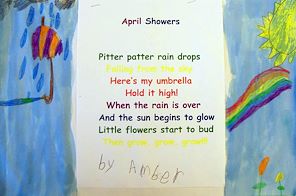 April Showers
Pitter patter rain drops
Falling from the sky
Here's my umbrella
Hold it high!
When the rain is over
And the sun begins to glow
Little flowers start to bud
Then grow, grow, grow!!!
by Amber